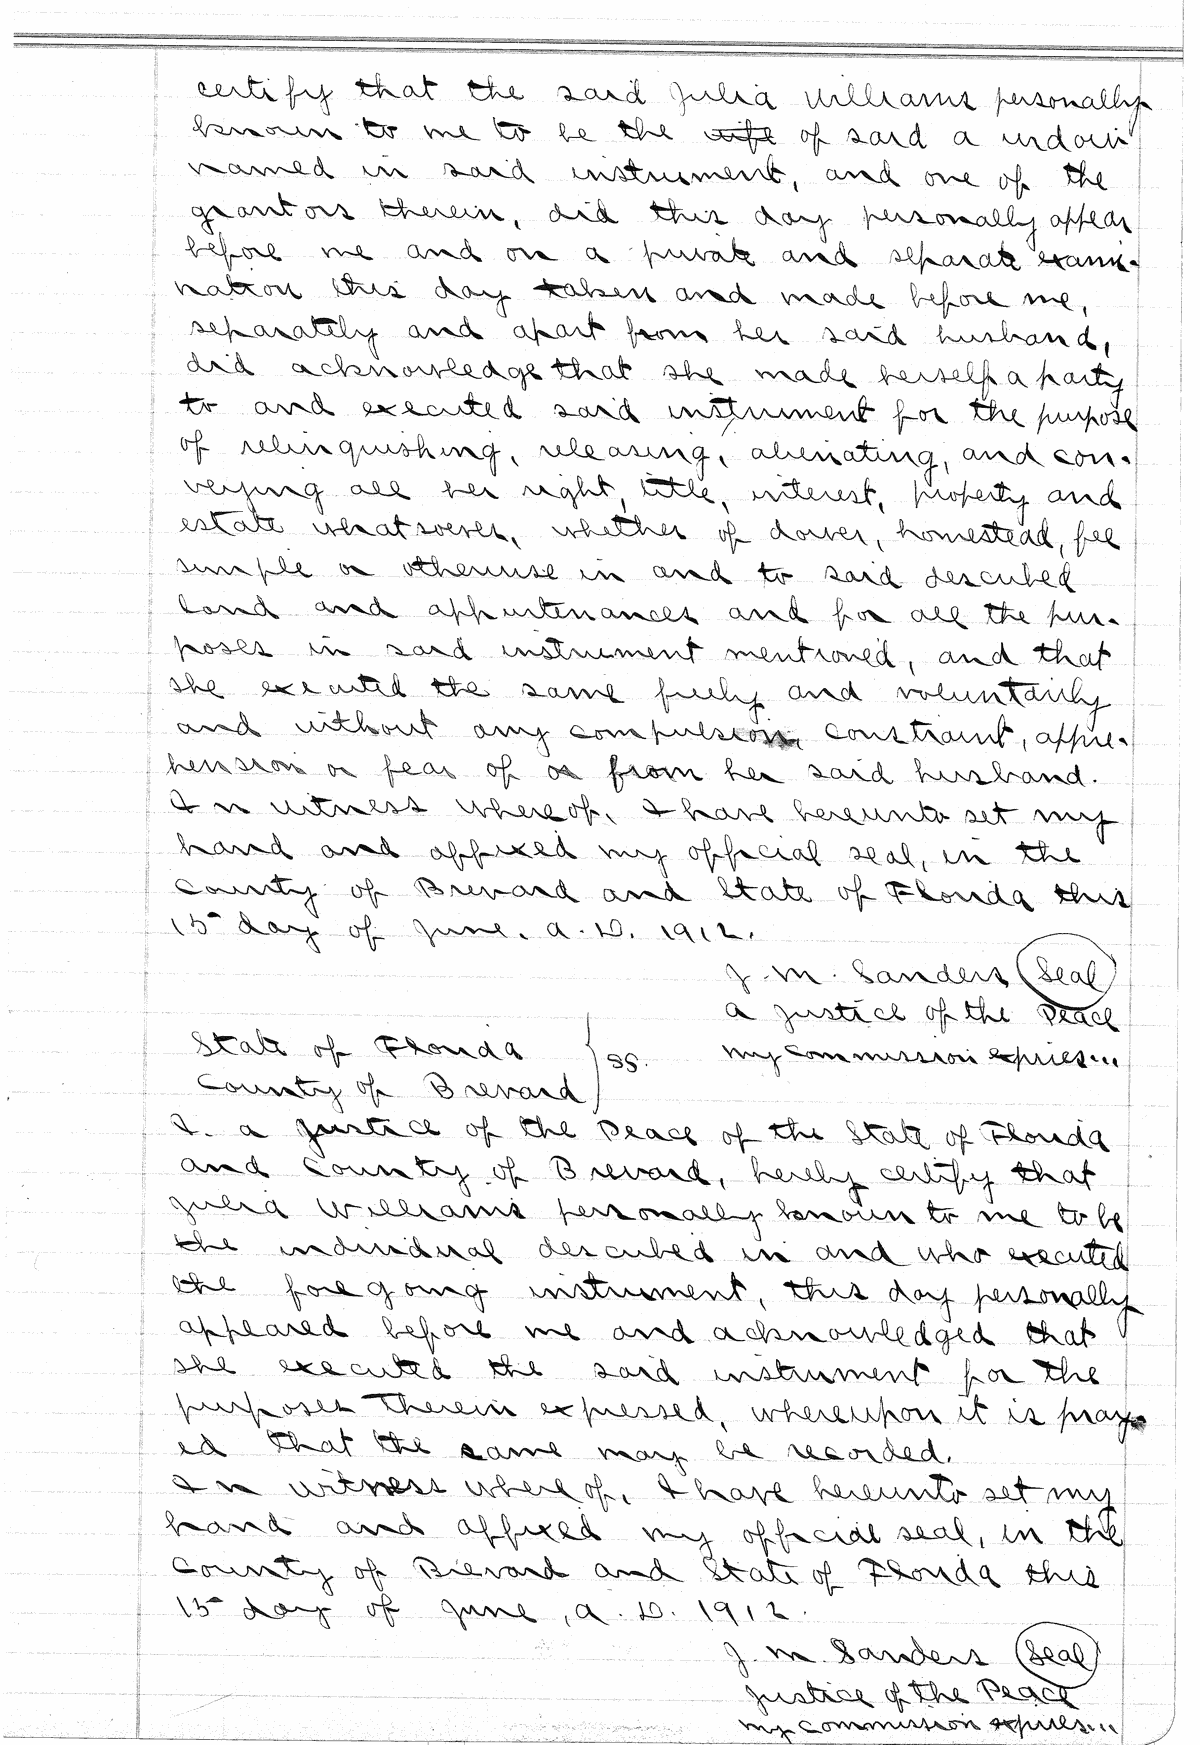 certify that the said Julia Williams personally
known to me to be the wife of said a widow
named in said instrument, and one of the
grantors therein, did this day personally appear
before me and on a private and separate exami-
nation this day taken and made before me,
separately and apart from her said husband,
did acknowledge that she made herself a party
to and executed said instrument for the purpose
of relinquishing, releasing, alienating, and con-
veying all her right, title, interest, property and
estate whatsoever, whether of dower, homestead, fee
simple or otherwise in and to said described
land and appurtenances and for all the pur-
poses in said instrument mentioned, and that
she executed the same freely and voluntarily
and without any compulsion, constraint, appre-
hension or fear of or from her said husband.
In witness whereof, I have hereunto set my
hand and affixed my official seal, in the
County of Brevard and State of Florida this
15 day of June. A.D. 1912.
J. M. Sanders Seal
a Justice of the Peace
State of Florida } ss. my commission expries...
County of Brevard
I. a Justice of the Peace of the State of Florida
and County of Brevard, hereby certify that
Julia Williams personally known to me to be
the individual described in and who executed
the foregoing instrument, this day personally
appeared before me and acknowledged that
she executed the said instrument for the
purposes therein expressed, whereupon it is pray-
ed that the same may be recorded.
In witness whereof, I have hereunto set my
hand and affixed my official seal, in the
County of Brevard and State of Florida this
15 day of June, A.D. 1912.
J. M. Sanders Seal
Justice of the Peace
my commission expires...